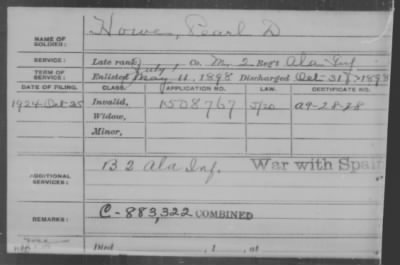 NAME OF SOLDIER: Howe, Pearl D
SERVICE: Late rank, Co. M, 2 Reg't Ala Inf
TERM OF SERVICE: Enlisted July 1, May 11, 1898 Discharged Oct 31, 1898
DATE OF FILING. CLASS. APPLICATION NO. LAW. CERTIFICATE NO.
1924-Oct-25 Invalid, 1508767 A9-28-28
Widow,
Minor,
ADDITIONAL SERVICES: B 2 Ala Inf. War with Spain
REMARKS: C-883,322 COMBINED
Died , 1 , at